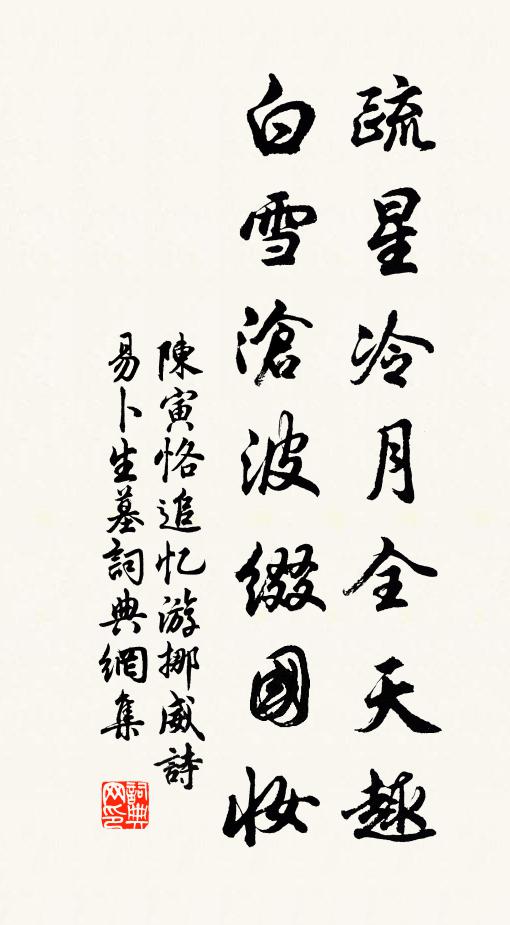 疏星冷月全天趣
白雪滄波綴國妝
陳寅恪追忆游挪威詩
易卜生墓詞典網集
詞典
网印